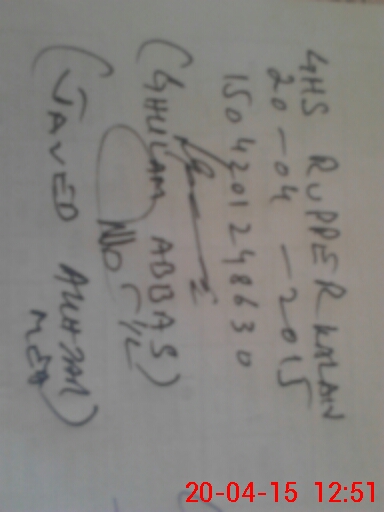 GHS RUPPER KALAN
20-04-2015
1504201248630
(GHULAM ABBAS)
No
(JAVED AKHTAR)
MEA
20-04-15 12:51